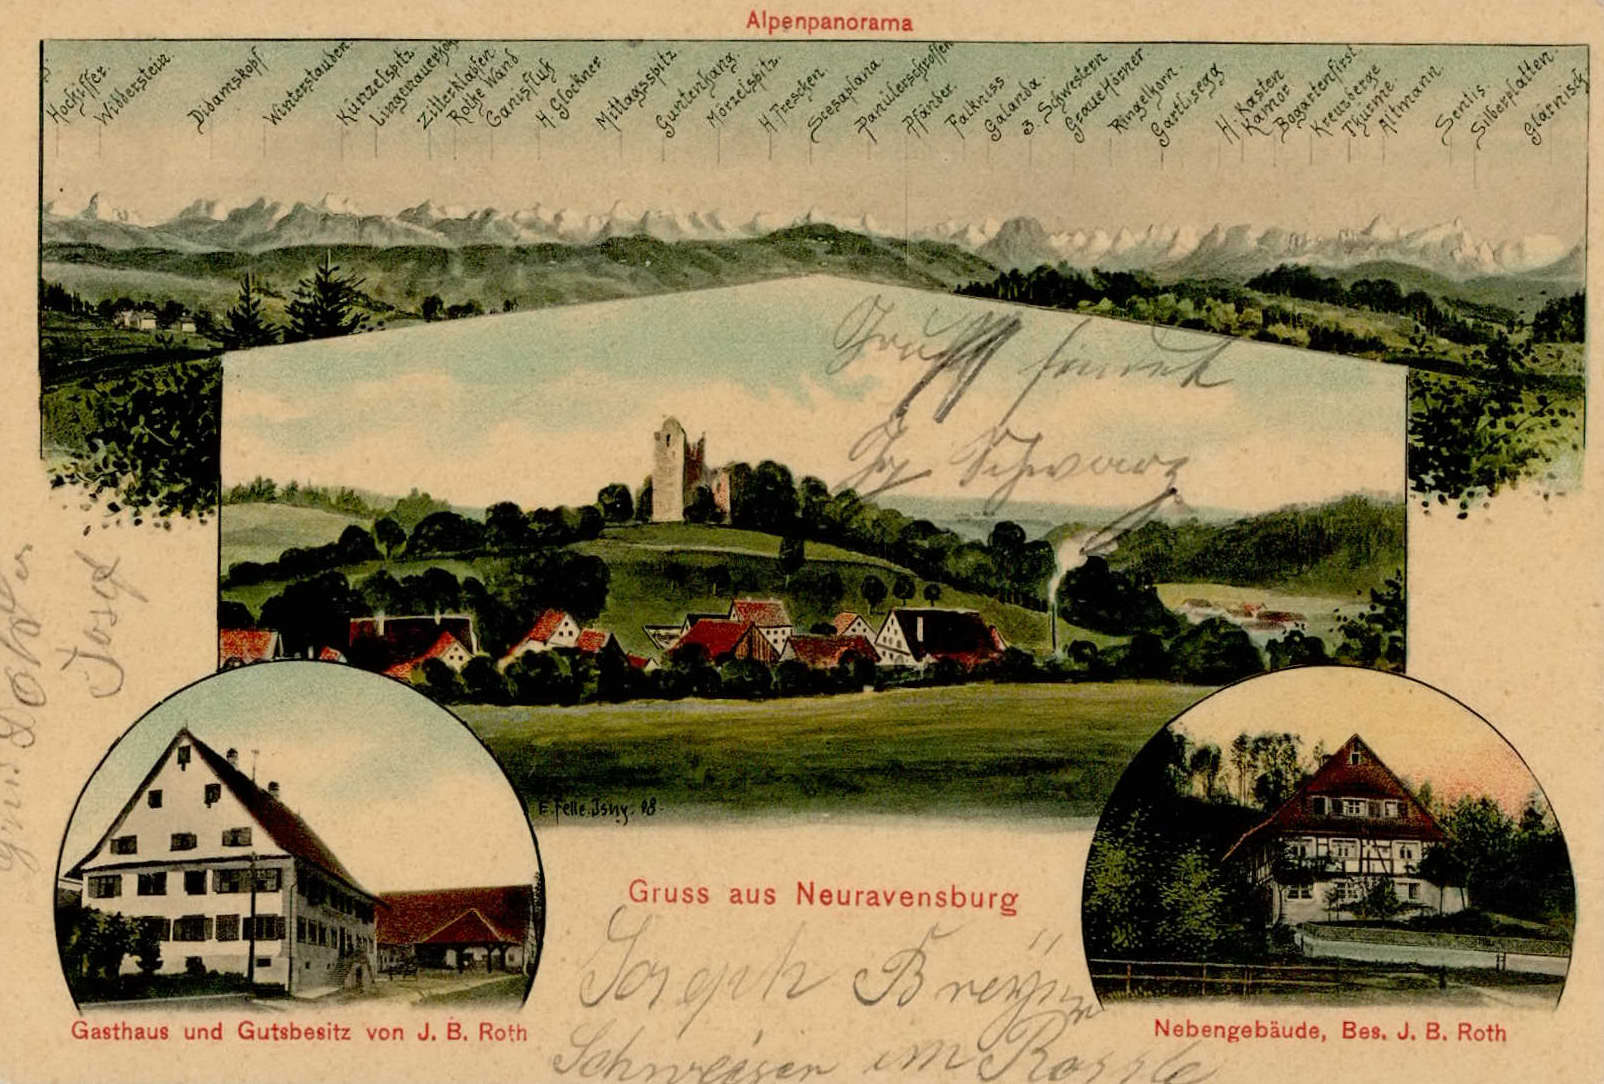 Alpenpanorama
Hochiffer.
Widderstein.
Didamskopf
Winterstauden.
Künzelspitz.
Lingenauerkopf
Zitterklapfen.
Rothe Wand
Canisfluh
H. Glockner.
Mittagsspitz.
Guntenhang.
Mörzelspitz.
H. Freschen.
Scesaplana.
Panülerschroffen
Pfänder.
Falkniss
Galanda.
3. Schwestern
Graue Hörner
Ringelhorn.
Gartlisegg
H. Kasten
Kamor
Bogartenfirst.
Kreuzberge
Thürme.
Altmann
Sentis.
Silberplatten.
Glärnisch
Gruss sendet
Schwarz
Josef
E. Felle. Isny. 08.
Gruss aus Neuravensburg
Joseph
Schweizer im Rössle
Gasthaus und Gutsbesitz von J. B. Roth
Nebengebäude, Bes. J. B. Roth